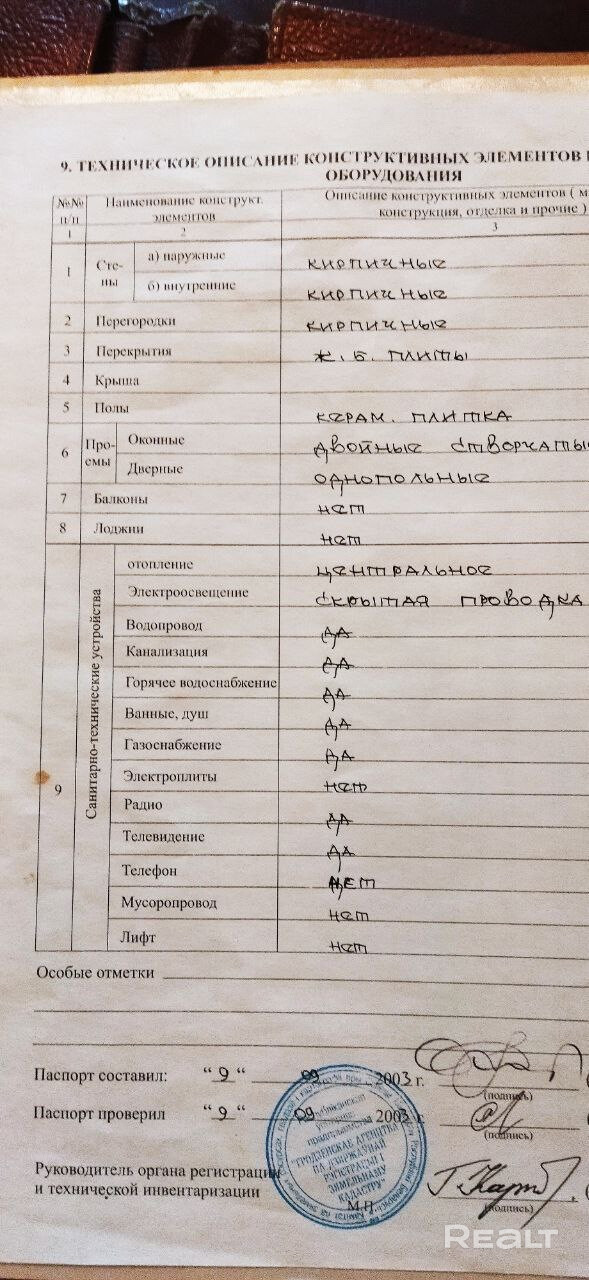 9. ТЕХНИЧЕСКОЕ ОПИСАНИЕ КОНСТРУКТИВНЫХ ЭЛЕМЕНТОВ
ОБОРУДОВАНИЯ
№№ п/п Наименование конструкт. элементов Описание конструктивных элементов ( м
конструкция, отделка и прочие )
1 2 3
1 Сте-ны а) наружные кирпичные
б) внутренние кирпичные
2 Перегородки кирпичные
3 Перекрытия ж. б. плиты
4 Крыша
5 Полы керам. плитка
6 Про-емы Оконные двойные створчатые
Дверные однопольные
7 Балконы нет
8 Лоджии нет
9 Санитарно-технические устройства
отопление центральное
Электроосвещение скрытая проводка
Водопровод да
Канализация да
Горячее водоснабжение да
Ванные, душ да
Газоснабжение да
Электроплиты нет
Радио да
Телевидение да
Телефон нет
Мусоропровод нет
Лифт нет
Особые отметки
Паспорт составил: “ 9 “ 09 2003 г.
(подпись)
Паспорт проверил “ 9 “ 09 2003 г.
(подпись)
Руководитель органа регистрации
и технической инвентаризации
(подпись)
М.П.
"ГРОДЗЕНСКАЕ АГЕНЦТВА
ПА ДЗЯРЖАЎНАЙ
РЭГІСТРАЦЫІ І
ЗЯМЕЛЬНАМУ
КАДАСТРУ"
REALT